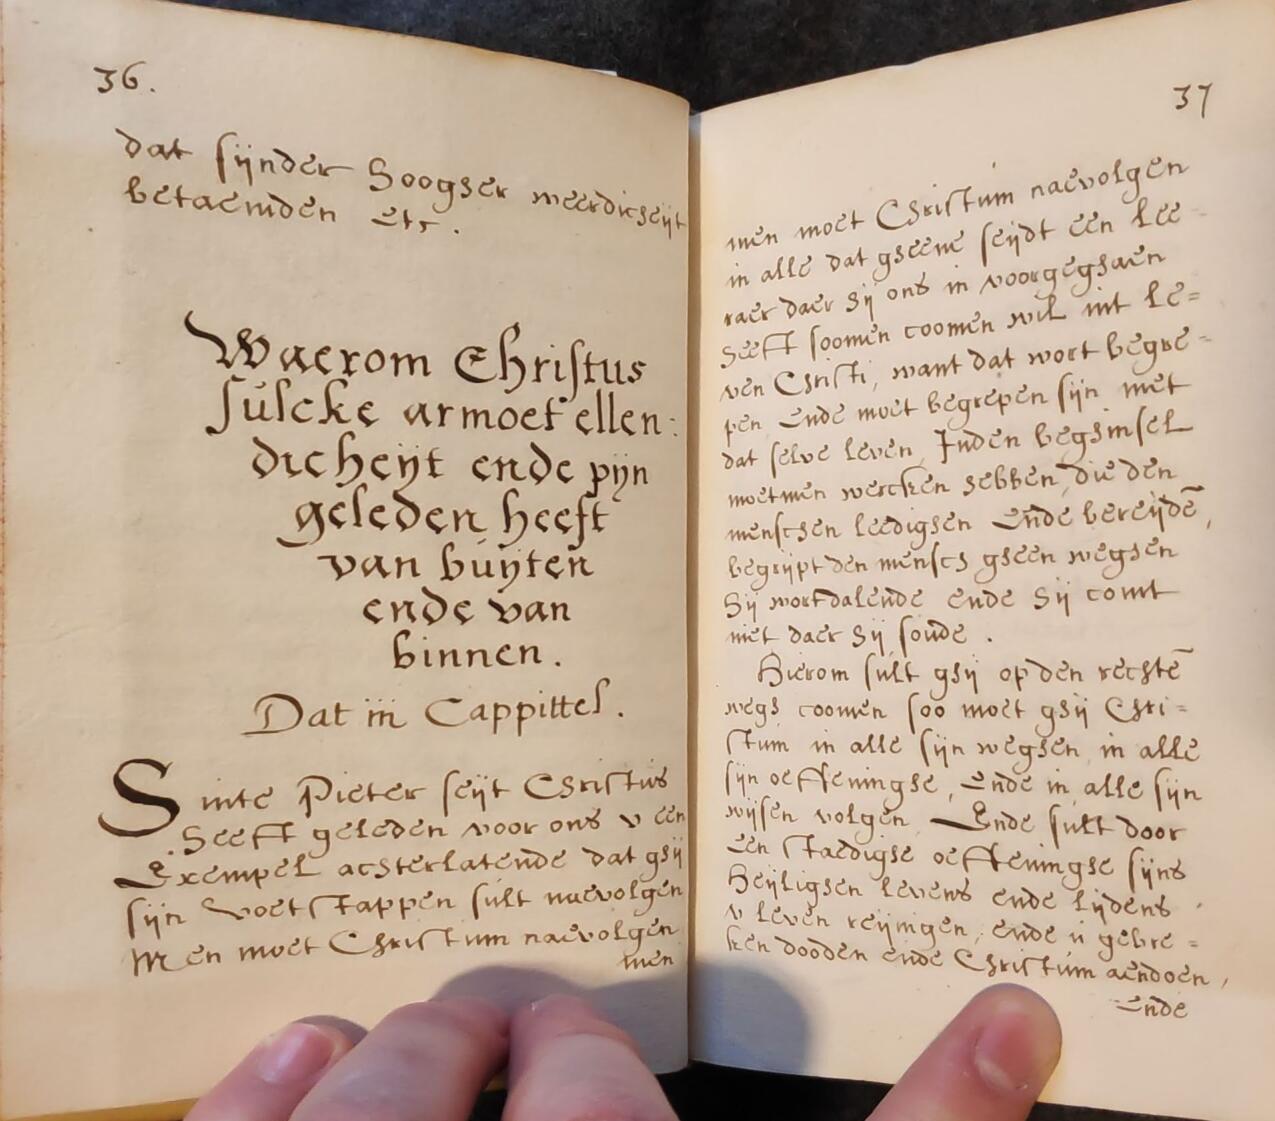 36.
dat sijnder hoogher weerdicheijt
betaemden etc.
Waerom Christus
sulcke armoet ellen:
dicheijt ende pijn
geleden heeft
van buijten
ende van
binnen.
Dat iii Cappittel.
Sinte Pieter seijt Christus
heeft geleden voor ons v een
Exempel achterlatende dat ghij
sijn voetstappen sult naevolgen
Men moet Christum naevolgen
men
37
men moet Christum naevolgen
in alle dat gheene seijdt een lee
raer daer hij ons in voorgeghaen
heeft soomen coomen wil int le=
ven Christi, want dat wort begre=
pen ende moet begrepen sijn met
dat selve leven, Inden beghinsel
moetmen wercken hebben, die den
menschen leedighen ende bereijdē,
begrijpt den mensch gheen weghen
hij wort dalende ende hij comt
niet daer hij soude.
Hierom sult ghij op den rechtē
wegh coomen soo moet ghij Chri=
stum in alle sijn weghen, in alle
sijn oeffeninghe, ende in alle sijn
wijsen volgen, Ende sult door
een staedighe oeffeninghe sijns
heijlighen levens ende lijdens
v leven reijnigen, ende u gebre=
ken dooden ende Christum aendoen,
ende